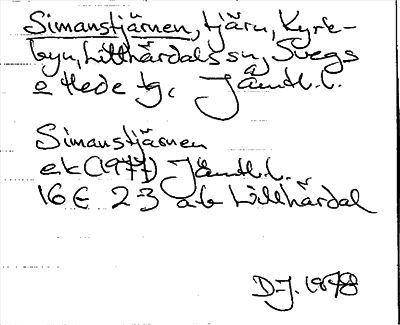 Simanstjärnen, tjärn, Kyrk-
byn, Lillhärdals sn, Svegs
o Hede tg, Jämtl. l.
Simanstjärnen
ek (1977) Jämtl. l.
16E 2-3 a-b Lillhärdal
D-J. 1978